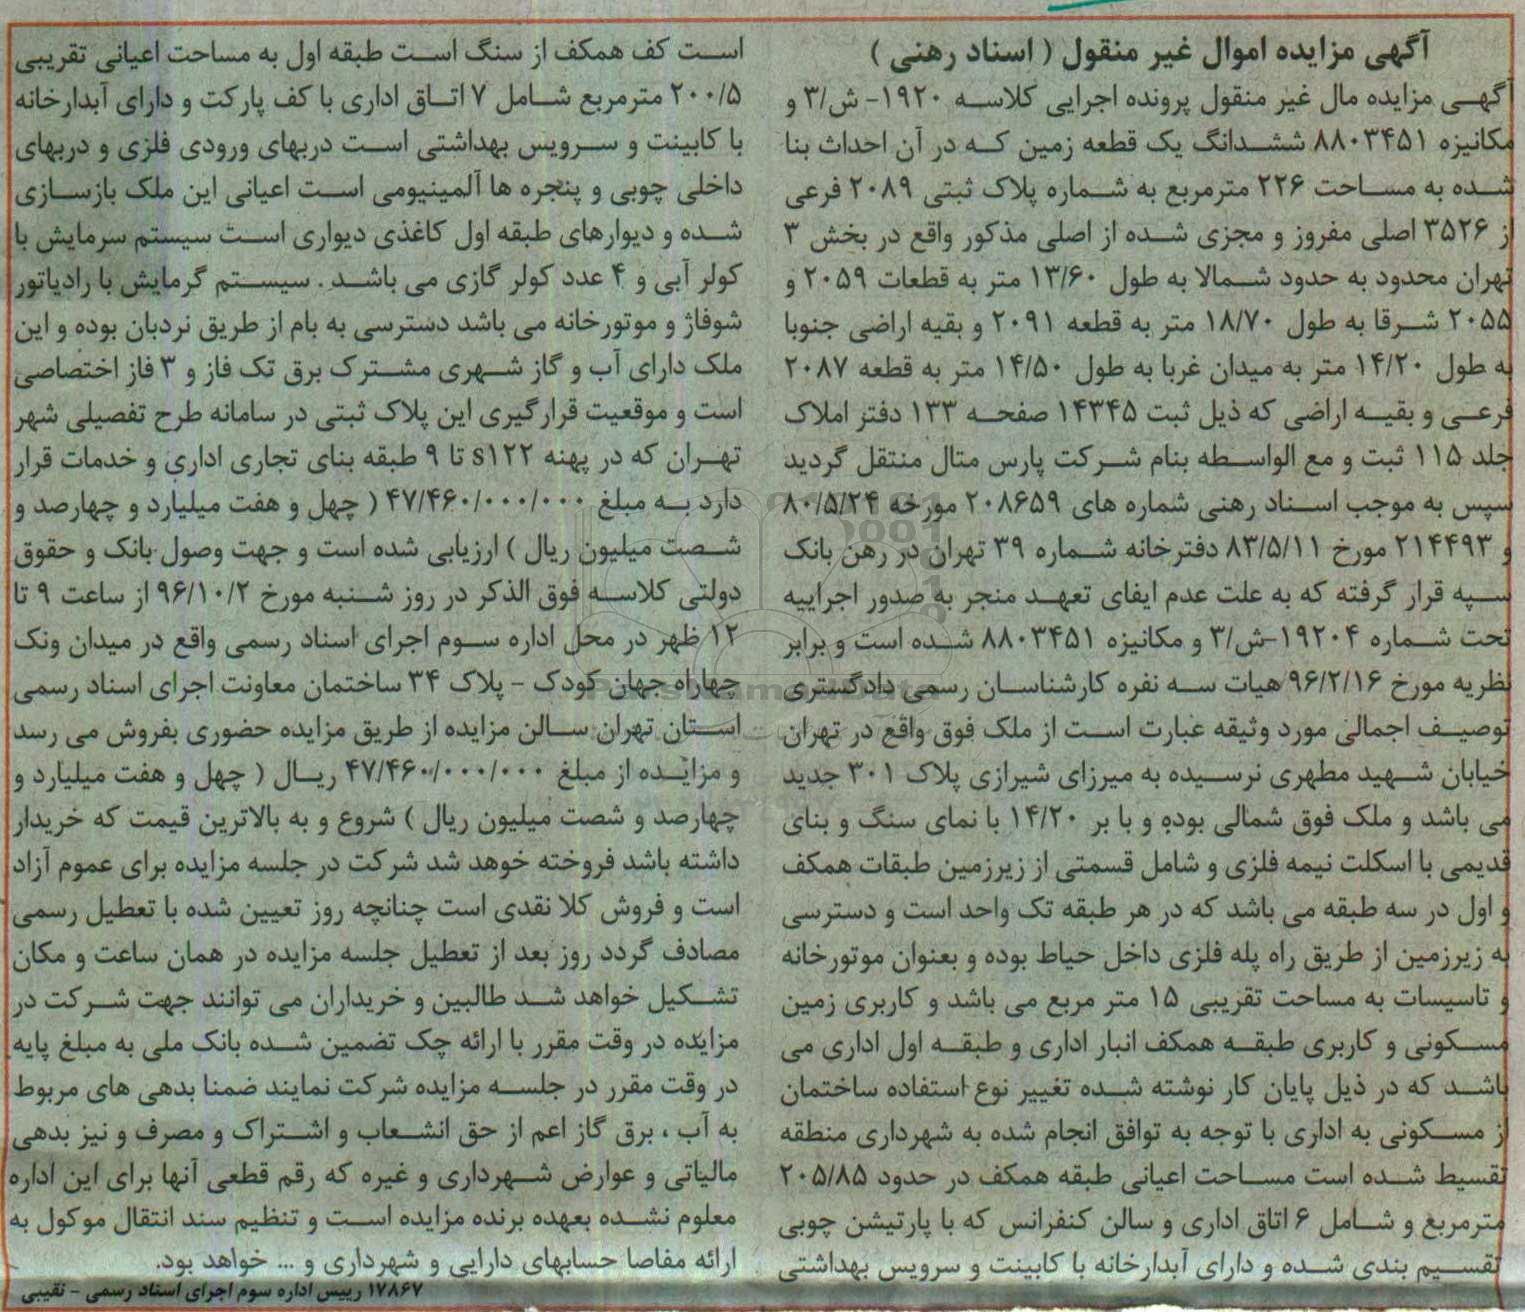 آگهی مزایده اموال غیر منقول ( اسناد رهنی )
آگهی مزایده مال غیر منقول پرونده اجرایی کلاسه ۱۹۲۰- ش/۳ و
مکانیزه ۸۸۰۳۴۵۱ ششدانگ یک قطعه زمین که در آن احداث بنا
شده به مساحت ۲۲۶ مترمربع به شماره پلاک ثبتی ۲۰۸۹ فرعی
از ۳۵۲۶ اصلی مفروز و مجزی شده از اصلی مذکور واقع در بخش ۳
تهران محدود به حدود شمالا به طول ۱۳/۶۰ متر به قطعات ۲۰۵۹ و
۲۰۵۵ شرقا به طول ۱۸/۷۰ متر به قطعه ۲۰۹۱ و بقیه اراضی جنوبا
به طول ۱۴/۲۰ متر به میدان غربا به طول ۱۴/۵۰ متر به قطعه ۲۰۸۷
فرعی و بقیه اراضی که ذیل ثبت ۱۴۳۴۵ صفحه ۱۳۳ دفتر املاک
جلد ۱۱۵ ثبت و مع الواسطه بنام شرکت پارس متال منتقل گردید
سپس به موجب اسناد رهنی شماره های ۲۰۸۶۵۹ مورخه ۸۰/۵/۲۴
و ۲۱۴۴۹۳ مورخ ۸۳/۵/۱۱ دفترخانه شماره ۳۹ تهران در رهن بانک
سپه قرار گرفته که به علت عدم ایفای تعهد منجر به صدور اجراییه
تحت شماره ۱۹۲۰۴-ش/۳ و مکانیزه ۸۸۰۳۴۵۱ شده است و برابر
نظریه مورخ ۹۶/۲/۱۶ هیات سه نفره کارشناسان رسمی دادگستری
توصیف اجمالی مورد وثیقه عبارت است از ملک فوق واقع در تهران
خیابان شهید مطهری نرسیده به میرزای شیرازی پلاک ۳۰۱ جدید
می باشد و ملک فوق شمالی بوده و با بر ۱۴/۲۰ با نمای سنگ و بنای
قدیمی با اسکلت نیمه فلزی و شامل قسمتی از زیرزمین طبقات همکف
و اول در سه طبقه می باشد که در هر طبقه تک واحد است و دسترسی
به زیرزمین از طریق راه پله فلزی داخل حیاط بوده و بعنوان موتورخانه
و تاسیسات به مساحت تقریبی ۱۵ متر مربع می باشد و کاربری زمین
مسکونی و کاربری طبقه همکف انبار اداری و طبقه اول اداری می
باشد که در ذیل پایان کار نوشته شده تغییر نوع استفاده ساختمان
از مسکونی به اداری با توجه به توافق انجام شده به شهرداری منطقه
تقسیط شده است مساحت اعیانی طبقه همکف در حدود ۲۰۵/۸۵
مترمربع و شامل ۶ اتاق اداری و سالن کنفرانس که با پارتیشن چوبی
تقسیم بندی شده و دارای آبدارخانه با کابینت و سرویس بهداشتی
است کف همکف از سنگ است طبقه اول به مساحت اعیانی تقریبی
۲۰۰/۵ مترمربع شامل ۷ اتاق اداری با کف پارکت و دارای آبدارخانه
با کابینت و سرویس بهداشتی است دربهای ورودی فلزی و دربهای
داخلی چوبی و پنجره ها آلمینیومی است اعیانی این ملک بازسازی
شده و دیوارهای طبقه اول کاغذی دیواری است سیستم سرمایش با
کولر آبی و ۴ عدد کولر گازی می باشد . سیستم گرمایش با رادیاتور
شوفاژ و موتورخانه می باشد دسترسی به بام از طریق نردبان بوده و این
ملک دارای آب و گاز شهری مشترک برق تک فاز و ۳ فاز اختصاصی
است و موقعیت قرارگیری این پلاک ثبتی در سامانه طرح تفصیلی شهر
تهران که در پهنه s۱۲۲ تا ۹ طبقه بنای تجاری اداری و خدمات قرار
دارد به مبلغ ۴۷/۴۶۰/۰۰۰/۰۰۰ ( چهل و هفت میلیارد و چهارصد و
شصت میلیون ریال ) ارزیابی شده است و جهت وصول بانک و حقوق
دولتی کلاسه فوق الذکر در روز شنبه مورخ ۹۶/۱۰/۲ از ساعت ۹ تا
۱۲ ظهر در محل اداره سوم اجرای اسناد رسمی واقع در میدان ونک
چهاراه جهان کودک - پلاک ۳۴ ساختمان معاونت اجرای اسناد رسمی
استان تهران سالن مزایده از طریق مزایده حضوری بفروش می رسد
و مزایده از مبلغ ۴۷/۴۶۰/۰۰۰/۰۰۰ ریال ( چهل و هفت میلیارد و
چهارصد و شصت میلیون ریال ) شروع و به بالاترین قیمت که خریدار
داشته باشد فروخته خوهد شد شرکت در جلسه مزایده برای عموم آزاد
است و فروش کلا نقدی است چنانچه روز تعیین شده با تعطیل رسمی
مصادف گردد روز بعد از تعطیل جلسه مزایده در همان ساعت و مکان
تشکیل خواهد شد طالبین و خریداران می توانند جهت شرکت در
مزایده در وقت مقرر با ارائه چک تضمین شده بانک ملی به مبلغ پایه
در وقت مقرر در جلسه مزایده شرکت نمایند ضمنا بدهی های مربوط
به آب ، برق گاز اعم از حق انشعاب و اشتراک و مصرف و نیز بدهی
مالیاتی و عوارض شهرداری و غیره که رقم قطعی آنها برای این اداره
معلوم نشده بعهده برنده مزایده است و تنظیم سند انتقال موکول به
ارائه مفاصا حسابهای دارایی و شهرداری و ... خواهد بود.
۱۷۸۶۷ رییس اداره سوم اجرای اسناد رسمی - نقیبی